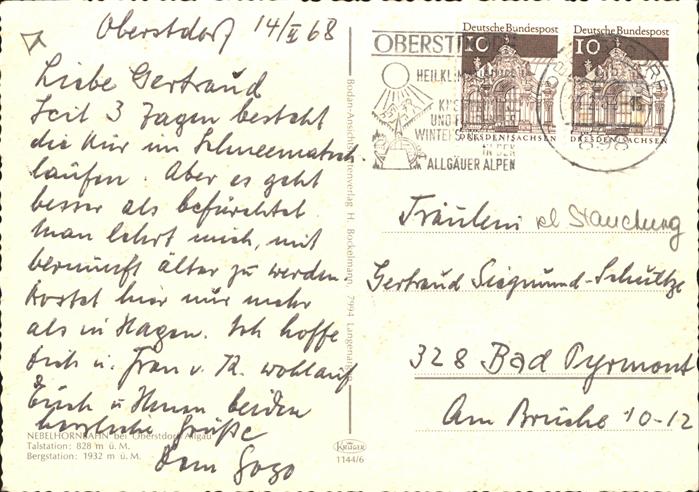 Oberstdorf 14/II 68
Liebe Gertraud
Seit 3 Tagen besteht
die Kur im Schneematsch
laufen. Aber es geht
besser als befürchtet
Man lehrt mich, mit
vernunft älter zu werden.
Kostet hier nur mehr
als in Hagen. Ich hoffe
Dich u. Frau v. R. wohlauf
Euch u Ihnen beiden
herzliche Grüße
Dein Gogo
NEBELHORNBAHN bei Oberstdorf/Allgäu
Talstation: 828 m ü. M.
Bergstation: 1932 m ü. M.
Bodan-Ansichtskartenverlag H. Bockelmann, 7994 Langenargen
KRÜGER
1144/6
Deutsche Bundespost
10
DRESDEN/SACHSEN
Deutsche Bundespost
10
DRESDEN/SACHSEN
OBERSTDORF
HEILKLIMATISCHER
UND
WINTERS
IN DEN
ALLGÄUER ALPEN
898
Fräulein
Gertraud Siegmund-Schultze
328 Bad Pyrmont
Am Bruche 10-12